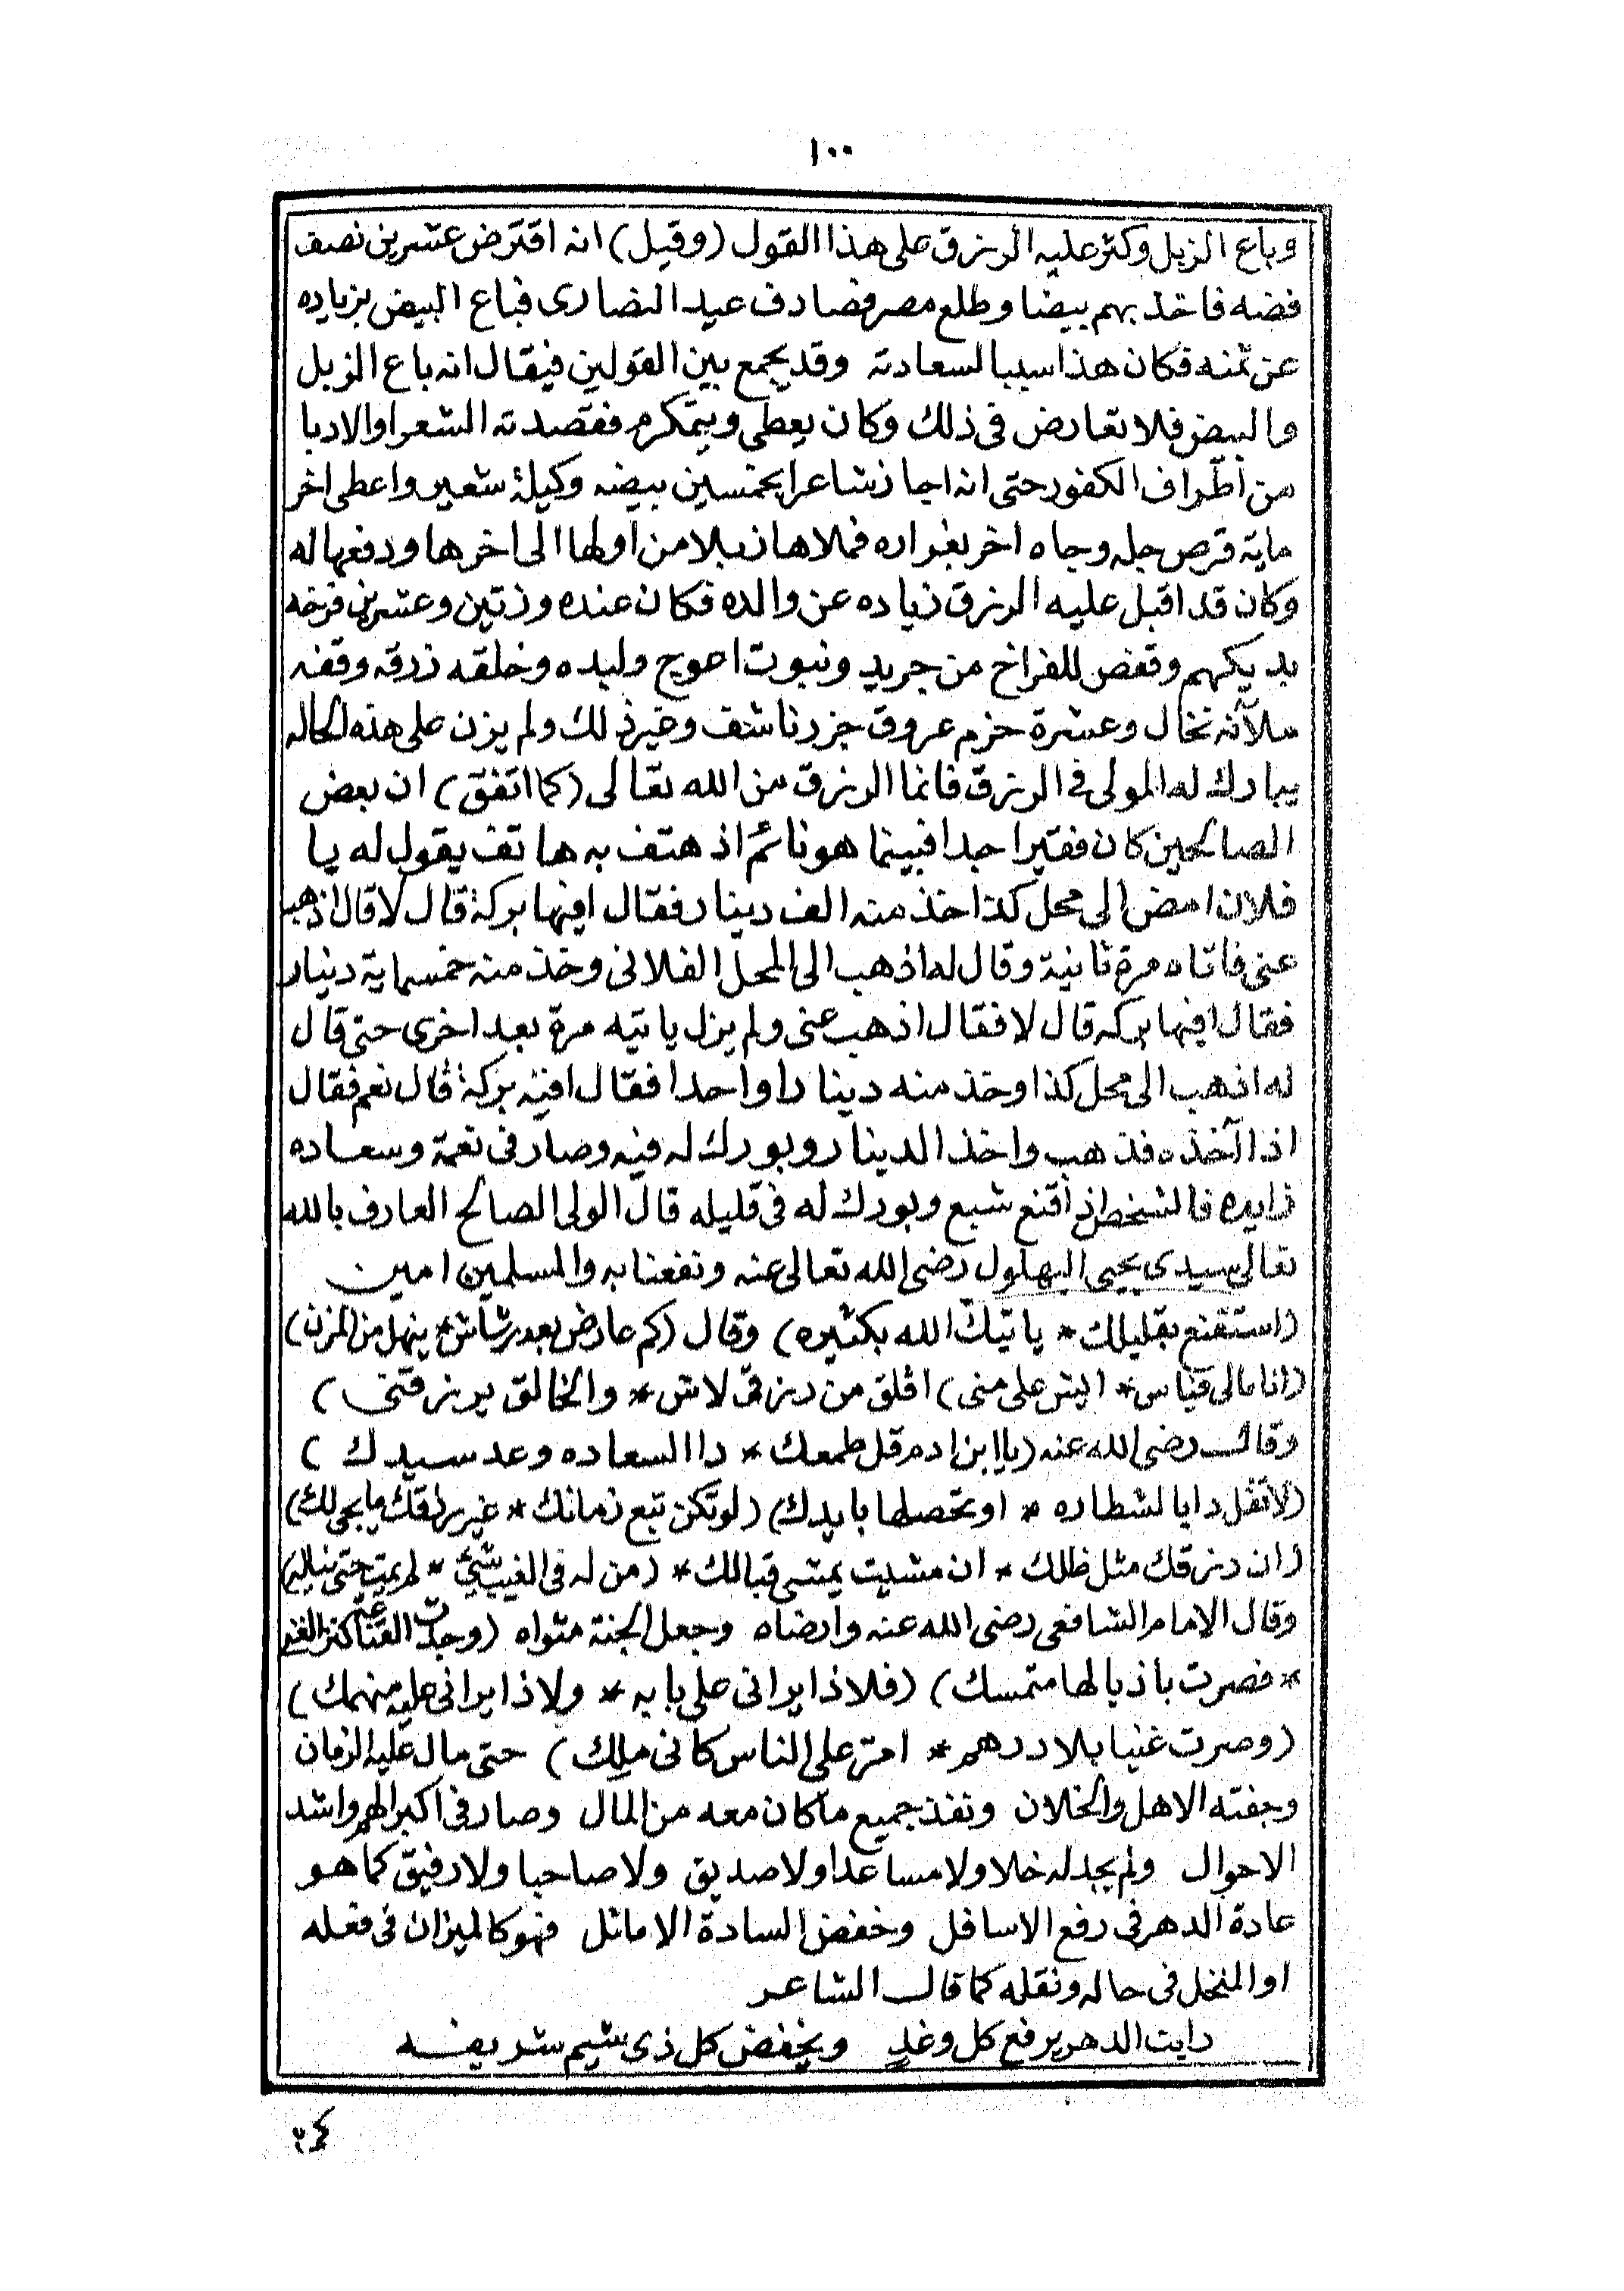 ١٠٠
وباع الزبل وكثر عليه الرزق على هذا القول (وقيل) انه اقترض عشرين نصف
فضه فاخذ بهم بيضا وطلع مصر فصادف عيد النصارى فباع البيض بزياده
عن ثمنه فكان هذا سببا لسعادته وقد يجمع بين القولين فيقال انه باع الزبل
والبيض فلا تعارض فى ذلك وكان يعطى ويتمكرم فقصدته الشعرا والادبا
من اطراف الكفور حتى انه اجاز شاعرا بخمسين بيضه وكيلة شعير واعطى اخر
ماية قرص جله وجاه اخر بغراره فملاها زبلا من اولها الى اخرها ودفعها له
وكان قد اقبل عليه الرزق زياده عن والده فكان عنده وزتين وعشرين فرخه
بديكهم وقفص للفراخ من جريد ونبوت احوج ولبده وخلقه زرقه وقفه
ملآنه نخال وعشرة حزم عروق جزر ناشف وغير ذلك ولم يزن على هذه الحاله
يبارك له المولى فى الرزق فانما الرزق من الله تعالى (كما اتفق) ان بعض
الصالحين كان فقيرا جدا فبينما هو نائم اذ هتف به هاتف يقول له يا
فلان امض الى محل كذا خذ منه الف دينار فقال افيها بركة قال لا قال اذهب
عنى فاتاه مرة ثانية وقال له اذهب الى المحل الفلانى وخذ منه خمسماية دينار
فقال افيها بركه قال لا فقال اذهب عنى ولم يزل ياتيه مرة بعد اخرى حتى قال
له اذهب الى محل كذا وخذ منه دينارا واحدا فقال افيه بركة قال نعم فقال
اذا آخذه فذهب واخذ الدينار وبورك له فيه وصار فى نعمة وسعاده
زايده فالشخص اذا قنع شبع وبورك له فى قليله قال الولى الصالح العارف بالله
تعالى سيدى يحيى البهلول رضى الله تعالى عنه ونفعنا به والمسلمين امين
(استقنع بقليلك * ياتيك الله بكثيره) وقال (كم عارض بعد رشاش * ينهل من المزن)
(انا مالى قناس * البس على منى) اقلق من رزقى لاش * والخالق يرزقنى)
وقال رضى الله عنه (يا ابن ادم قل طمعك * دا السعاده وعد سيدك)
(لا تقل دا يا لشطاره * او تحصلها بايدك) (لو تكن تبع زمانك * غير رزقك ما يجى لك)
(ان رزقك مثل ظلك * ان مشيت يمشى قبالك * (من له فى الغيب شئ * لم يمت حتى يناله)
وقال الامام الشافعى رضى الله عنه وارضاه وجعل الجنة مثواه (وجدت القناعة كنز الغنى
* فصرت باذيالها متمسك) (فلا ذا يرانى على بابه * ولا ذا يرانى عليه منهمك)
(وصرت غنيا بلا درهم * امتر على الناس كانى ملك) حتى مال عليه الزمان
وجفته الاهل والخلان ونفذ جميع ما كان معه من المال وصار فى اكبر الهم واشد
الاحوال ولم يجد له خلا ولا مساعدا ولا صديق ولا صاحبا ولا رفيق كما هو
عادة الدهر فى رفع الاسافل وخفض السادة الاماثل فهو كالميزان فى فعله
او المنخل فى حاله ونقله كما قال الشاعر
رايت الدهر يرفع كل وغد ويخفض كل ذى شيم شريفه